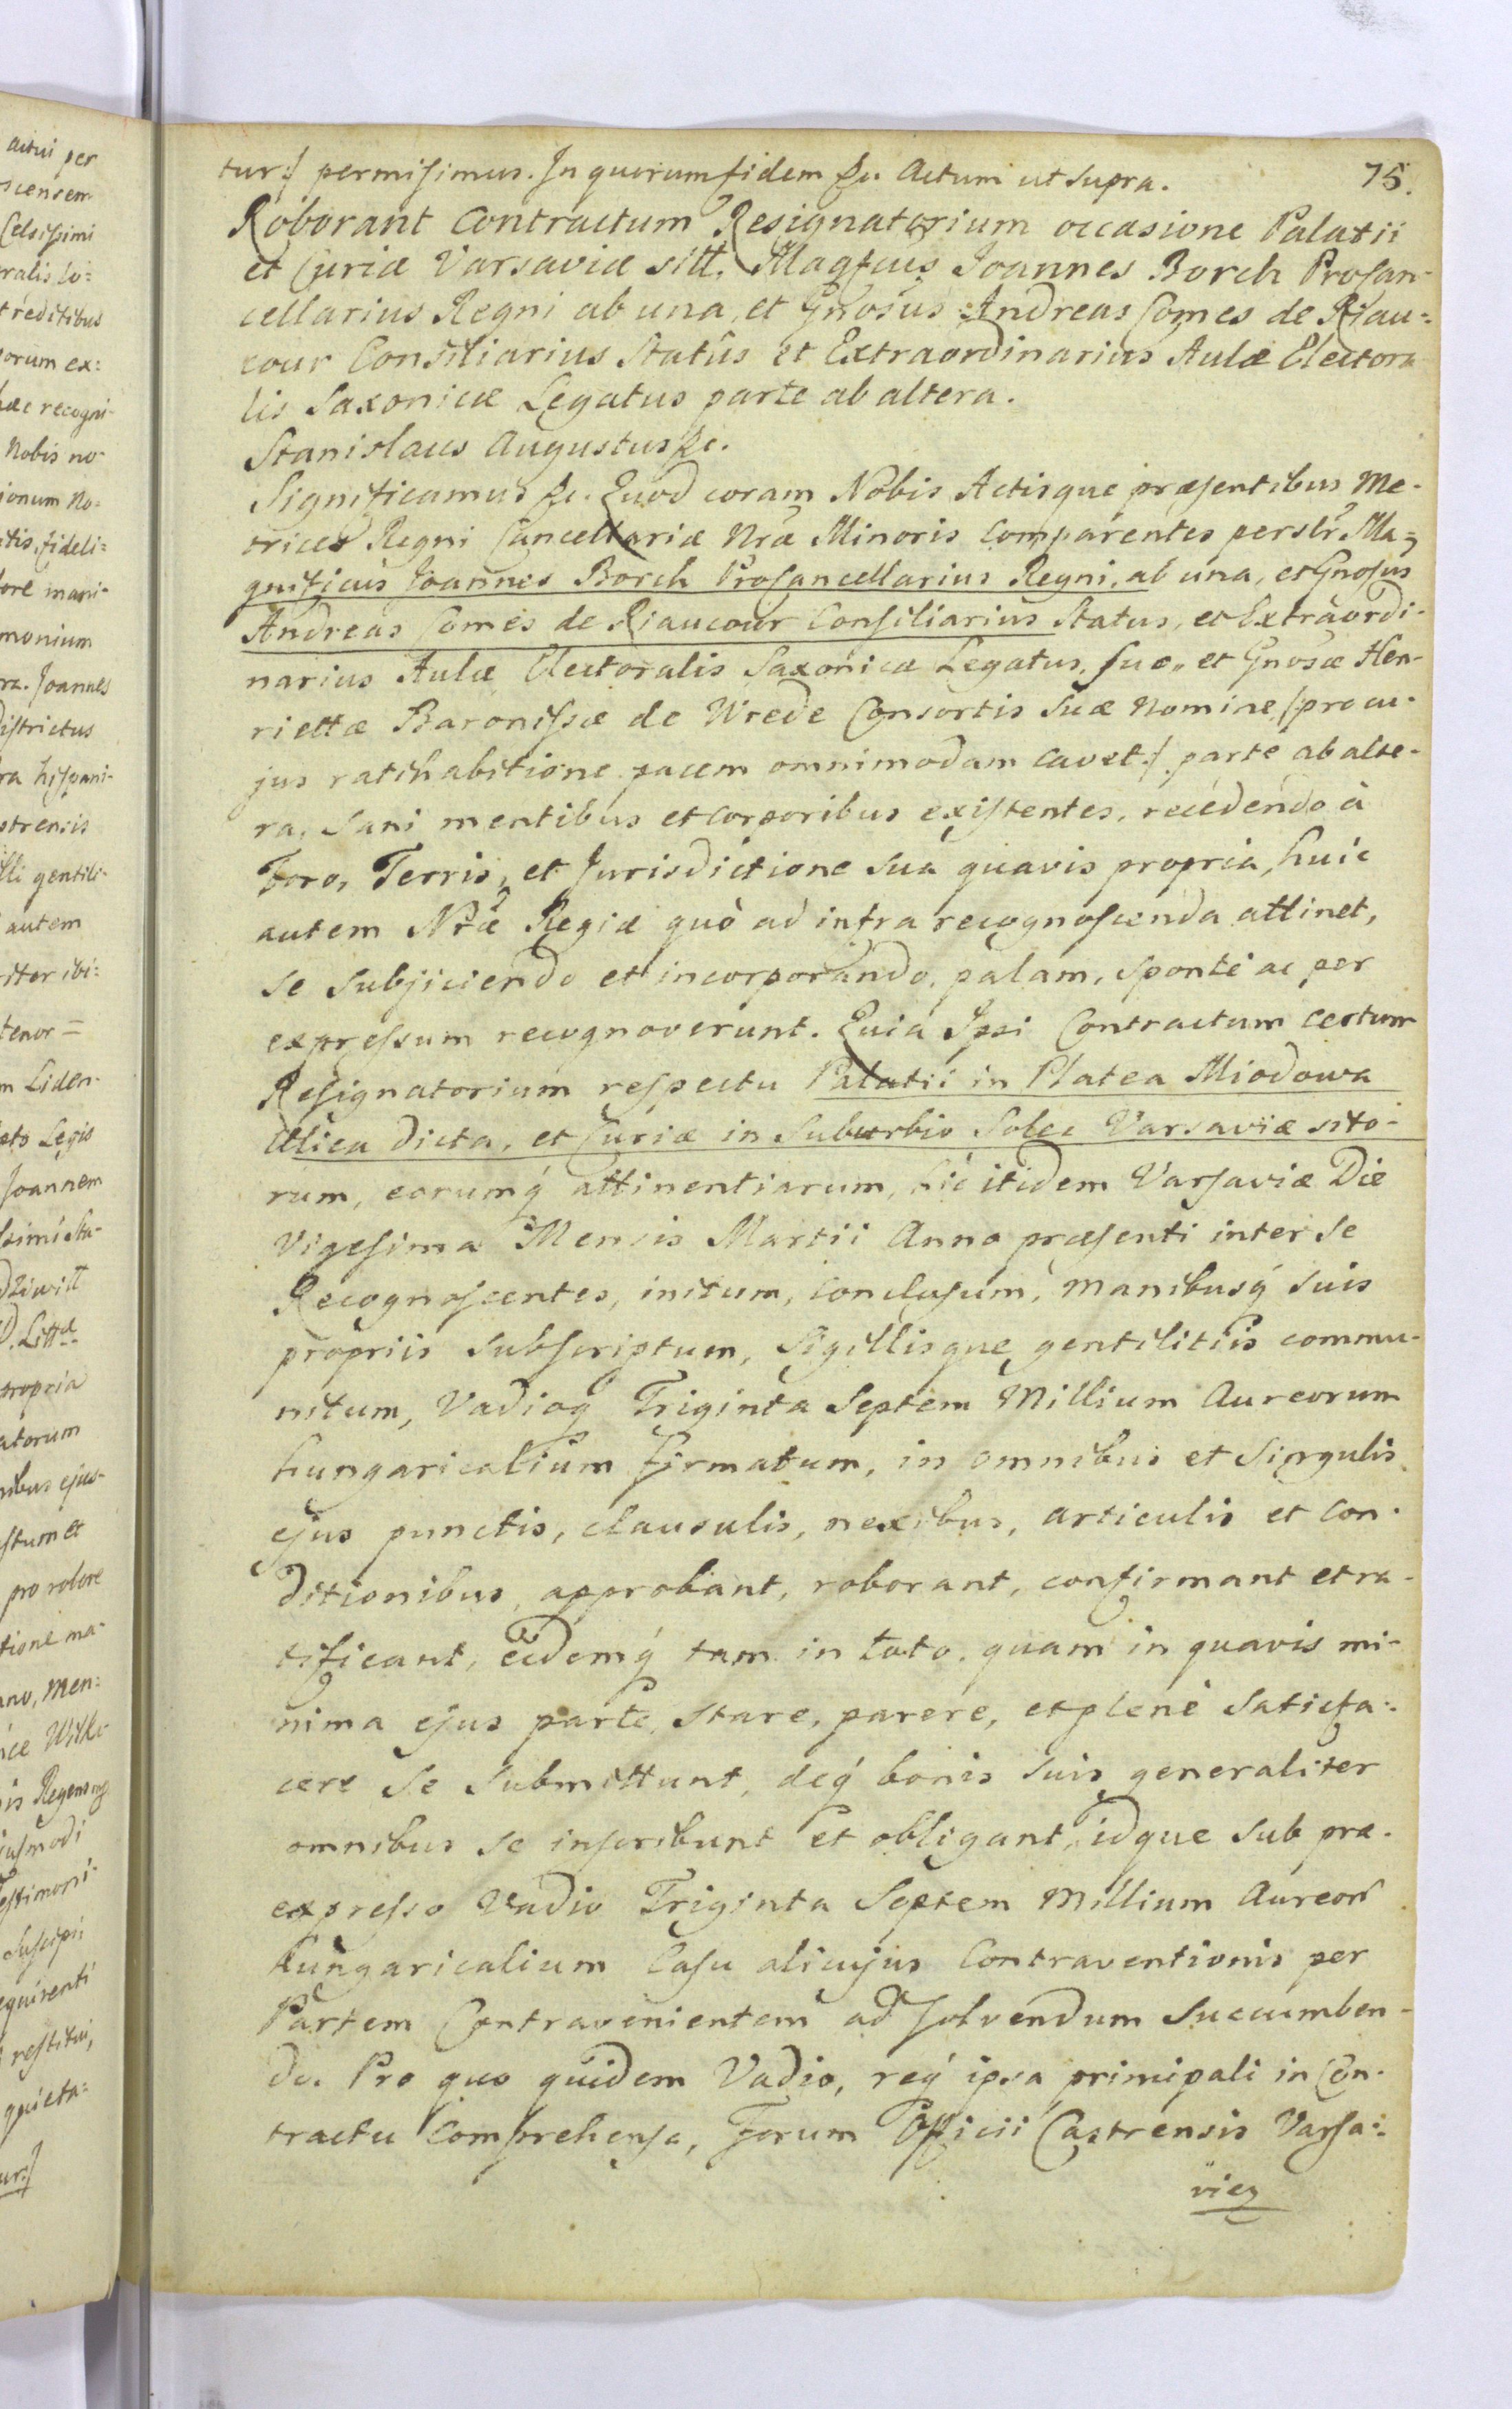 tur:/ permisimus. In quorum fidem &c. Actum ut supra. 75.
Roborant Contractum Resignatorium occasione Palatii
et Curiæ Varsaviæ sitt. Magfcus Joannes Borch Procan-
cellarius Regni ab una, et Gnosus Andreas Comes de Riau=
cour Consiliarius Statûs et Extraordinarius Aulæ Electora
lis Saxonicæ Legatus parte ab altera.
Stanislaus Augustus &c.
Significamus &c. Quod coram Nobis Actisque præsentibus Me-
trices Regni Cancellariæ Nræ Minoris Comparentes personlr. Ma-
gnificus Joannes Borch Procancellarius Regni, ab una, et Gnosus
Andreas Comes de Riaucour Consiliarius Status, et Extraordi-
narius Aulæ Electoralis Saxonicæ Legatus, suo, et Gnosæ Hen-
riettæ Baronissæ de Wrede Consortis Suæ Nomine /: pro cu-
jus ratihabitione pacem omnimodam cavet :/ parte ab alte-
ra, Sani mentibus et Corporibus existentes, recedendo à
Foro, Terris, et Jurisdictione Suâ quavis propria, huic
autem Nræ Regiæ quò ad infra recognoscenda attinet,
se Subjiciendo et incorporando, palam, Sponte ac per
expressum recognoverunt. Quia Ipsi Contractum Certum
Resignatorium respectu Palatii in Platea Miodowa
Ulica dicta, et Curiæ in Suburbio Solec Varsaviæ sito-
rum, eorumq́ attinentiarum, hic itidem Varsaviæ Die
Vigesima Mensis Martii Anno præsenti inter Se
Recognoscentes, initum, Conclusum, Manibusq́ Suis
propriis Subscriptum, Sigillisque gentilitiis commu-
nitum, Vadioq́ Triginta Septem Millium Aureorum
hungaricalium firmatum, in omnibus et Singulis
ejus punctis, clausulis, nexibus, articulis et Con-
ditionibus, approbant, roborant, confirmant et ra-
tificant, eidemq́ tam in toto, quam in quavis mi-
nima ejus parte, Stare, parere, et plenè Satisfa-
cere Se Submittunt, deq́ bonis Suis generaliter
omnibus Se inscribunt et obligant, idque Sub præ-
expresso Vadio Triginta Septem Millium Aureor
hungaricalium Casu alicujus Contraventionis per
Partem Contravenientem ad solvendum Succumben-
do. Pro quo quidem Vadio, req́ ipsa principali in Con-
tractu Comprehensa, Forum Officii Castrensis Varsa-
vien